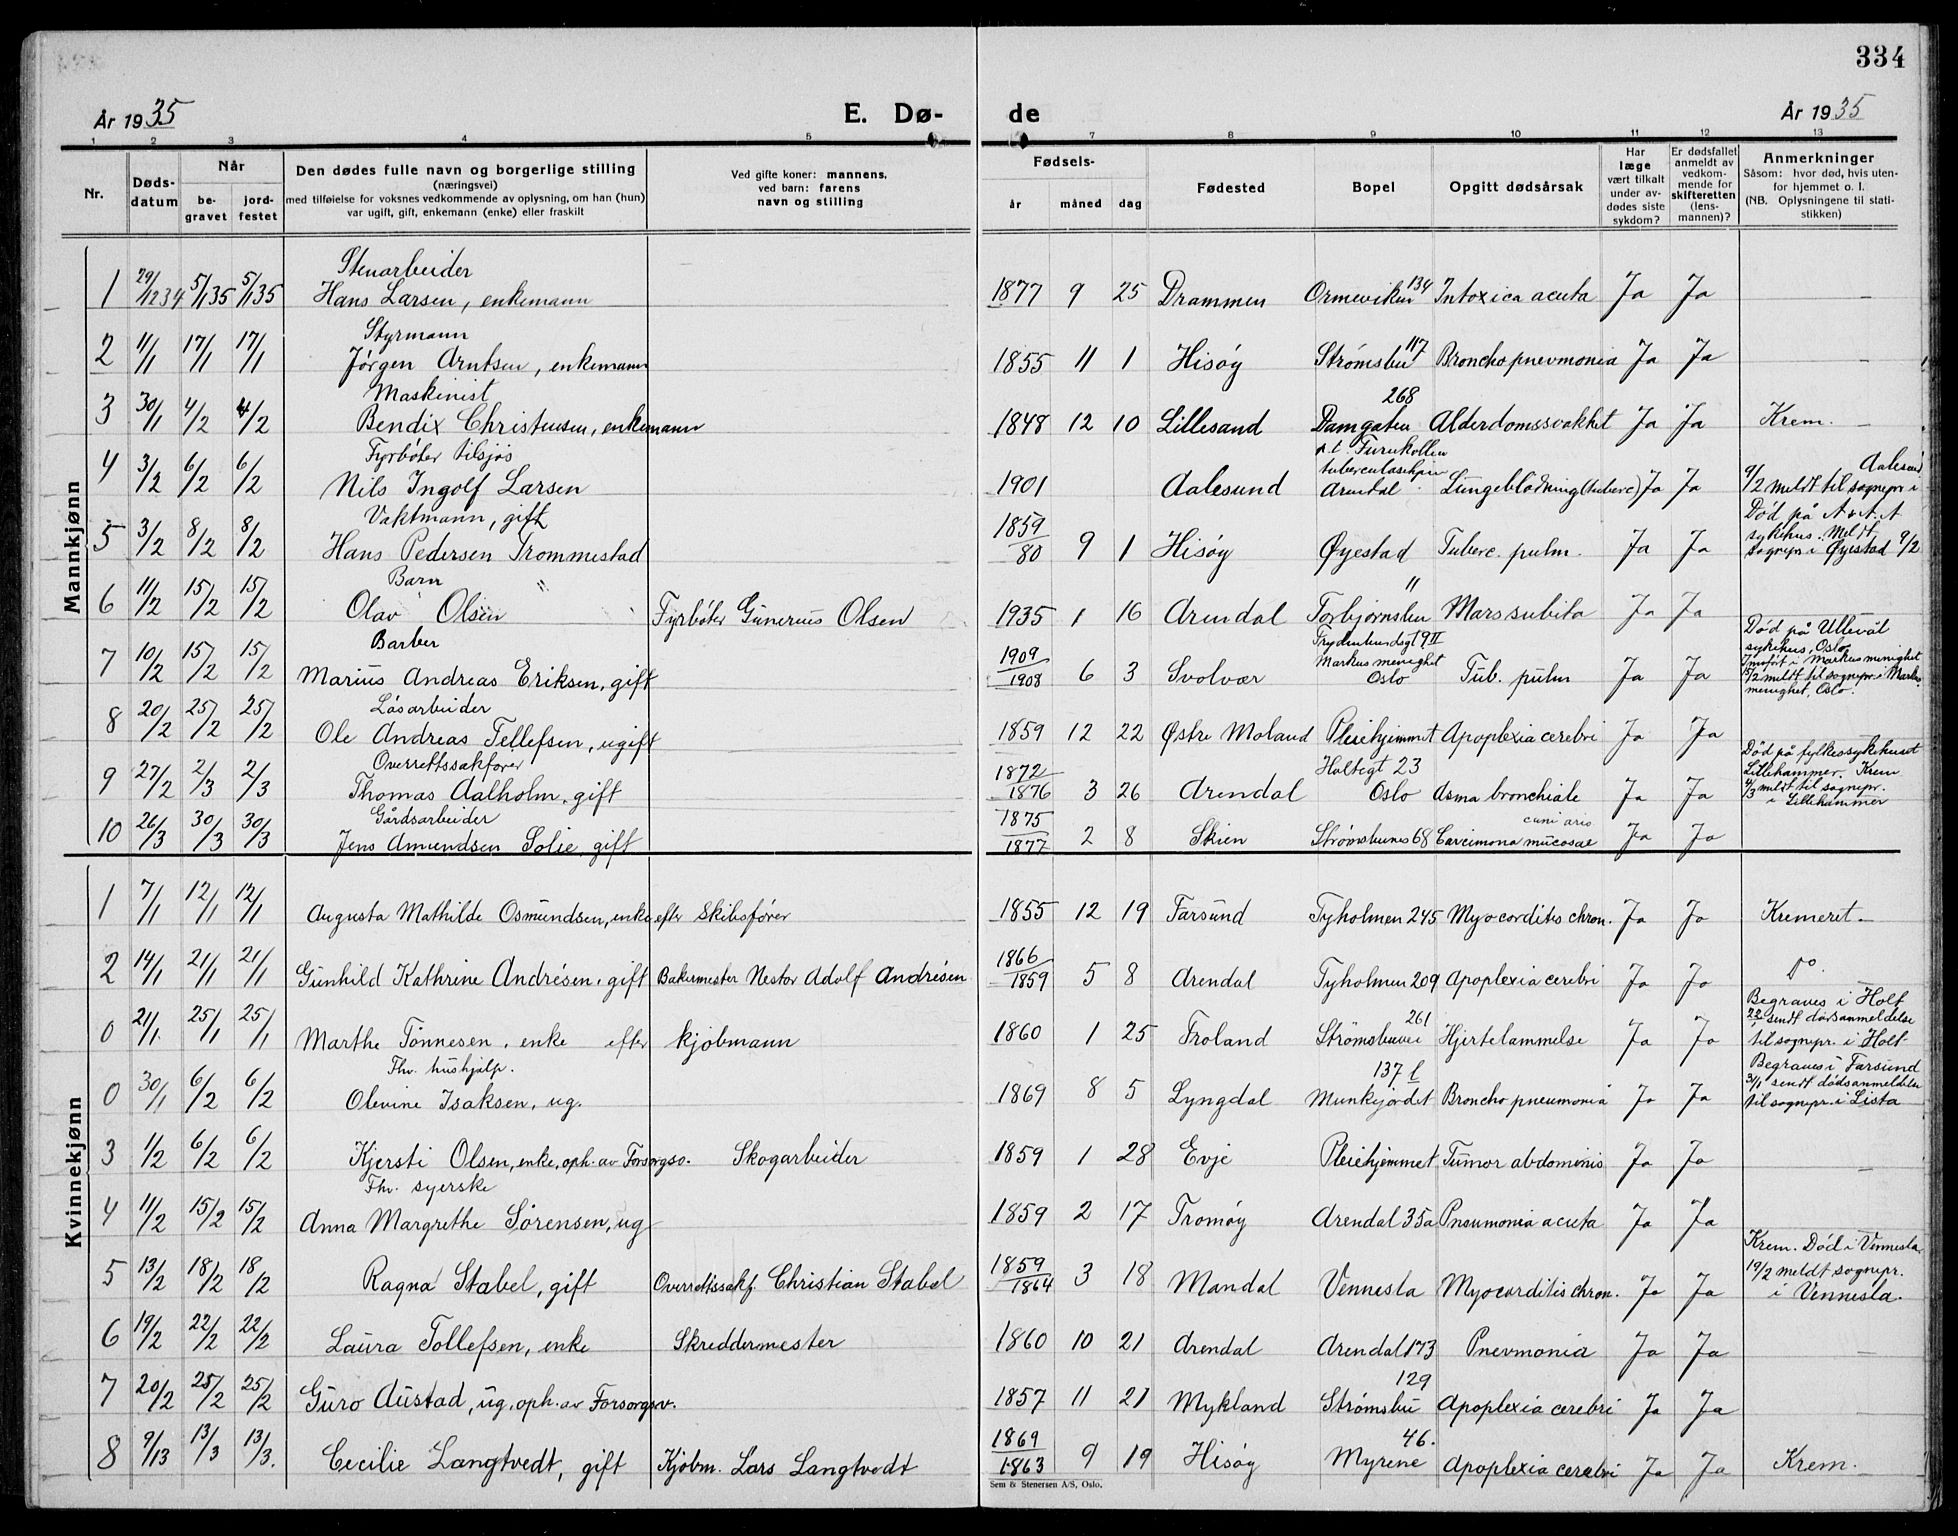 334
År 1935 E. Dø- de År 1935
1 2 3 4 5 7 8 9 10 11 12 13
Nr. Døds-datum Når be-gravet jord-festet Den dødes fulle navn og borgerlige stilling (næringsvei) med tilføielse for voksnes vedkommende av oplysning, om han (hun) var ugift, gift, enkemann (enke) eller fraskilt Ved gifte koner: mannens, ved barn: farens navn og stilling Fødsels- år måned dag Fødested Bopel Opgitt dødsårsak Har læge vært tilkalt under av-dødes siste sykdom? Er dødsfallet anmeldt av vedkom-mende for skifteretten (lens-mannen)? Anmerkninger Såsom: hvor død, hvis uten-for hjemmet o. l. (NB. Oplysningene til stati-stikken)
Mannkjønn
Stenarbeider
1 29/12 34 5/1 35 5/1 35 Hans Larsen, enkemann 1877 9 25 Drammen Ormeviken 134 Intoxica acuta Ja Ja —
Styrmann
2 11/1 17/1 17/1 Jørgen Arntsen, enkemann 1855 11 1 Hisøy Strømsbu 117 Bronchopnevmonia Ja Ja —
Maskinist 268
3 30/1 4/2 4/2 Bendix Christensen, enkemann 1848 12 10 Lillesand Damgaten Alderdomssvakhet Ja Ja Krem. —
Fyrbøter tilsjøs p.t. Furukollen
4 3/2 6/2 6/2 Nils Ingolf Larsen 1901 Aalesund tuberculasehjem Arendal Lungeblødning (tuberc) Ja Ja 9/2 meldt til sognepr. i Aalesund
Vaktmann, gift
5 3/2 8/2 8/2 Hans Pedersen Trommestad 1859/80 9 1 Hisøy Øyestad Tuberc. pulm. Ja Ja Død på A.A.A sykehus. Meldt sognepr. i Øyestad 9/2
Barn " "
6 11/2 15/2 15/2 Olav Olsen Fyrbøter Gunerius Olsen 1935 1 16 Arendal Torbjørnsbu Mars subita Ja Ja
Barber
7 10/2 15/2 15/2 Marius Andreas Eriksen, gift 1909/1908 6 3 Svolvær 9 II Markus menighet Oslo Tub. pulm Ja Ja Død på Ullevål sykehus, Oslo. Innført i Markus menighet /2 meldt til sognepr. i Markus menighet, Oslo.
Løsarbeider
8 20/2 25/2 25/2 Ole Andreas Tellefsen, ugift 1859 12 22 Østre Moland Pleiehjemmet Apoplexia cerebri Ja Ja
Overrettssakfører Holtegt 23
9 27/2 2/3 2/3 Thomas Aalholm, gift 1872/1876 3 26 Arendal Oslo Asma bronchiale Ja Ja Død på fylkessykehuset Lillehammer. Krem. 4/3 meldt til sognepr. i Lillehammer
Gårdsarbeider
10 26/3 30/3 30/3 Jens Amundsen Solie, gift 1875/1877 2 8 Skien Strømsbunes 68 Carcimona mucosae Ja Ja
Kvinnekjønn
1 7/1 12/1 12/1 Augusta Mathilde Osmundsen, enke efter skibsfører 1855 12 19 Farsund Tyholmen 245 Myocorditis chron. Ja Ja Kremeret. —
2 14/1 21/1 21/1 Gunhild Kathrine Andrésen, gift Bakermester Nestor Adolf Andrésen 1866/1859 5 8 Arendal Tyholmen 209 Apoplexia cerebri Ja Ja Do.
0 21/1 25/1 25/1 Marthe Tønnesen, enke efter kjøbmann 1860 1 25 Froland Strømsbuvei 261 Hjertelammelse Ja Ja Begraves i Holt 22/1 sendt dødsanmeldelse til sognepr. i Holt
Fhv. hushjelp. 137 l
0 30/1 6/2 6/2 Olevine Isaksen, ug. 1869 8 5 Lyngdal Munkejordet Broncho pneumonia Ja Ja Begraves i Farsund 31/1 sendt dødsanmeldelse til sognepr. i Lista
3 1/2 6/2 6/2 Kjersti Olsen, enke, oph. av Forsorgsv. Skogarbeider 1859 1 28 Evje Pleiehjemmet Tumor abdominis Ja Ja —
Fhv. syerske
4 11/2 15/2 15/2 Anna Margrethe Sørensen, ug 1859 2 17 Tromøy Arendal 35a Pneumonia acuta Ja Ja
5 13/2 18/2 18/2 Ragna Stabel, gift Overrettssakf. Christian Stabel 1859/1864 3 18 Mandal Vennesla Myocarditis chron. Ja Ja Krem. Død i Vennesla 19/2 meldt sognepr. i Vennesla.
6 19/2 22/2 22/2 Laura Tollefsen, enke Skreddermester 1860 10 21 Arendal Arendal 173 Pnevmonia Ja Ja —
7 20/2 25/2 25/2 Guro Austad, ug, oph. av Forsorgsv. 1857 11 21 Mykland Strømsbu 129 Apoplexia cerebri Ja Ja
8 9/13 13/3 13/3. Cecilie Langtvedt, gift Kjøbm. Lars Langtvedt 1869/1863 9 19 Hisøy Myrene 46. Apoplexia cerebri Ja Ja Krem.
Sem & Stenersen A/S, Oslo.